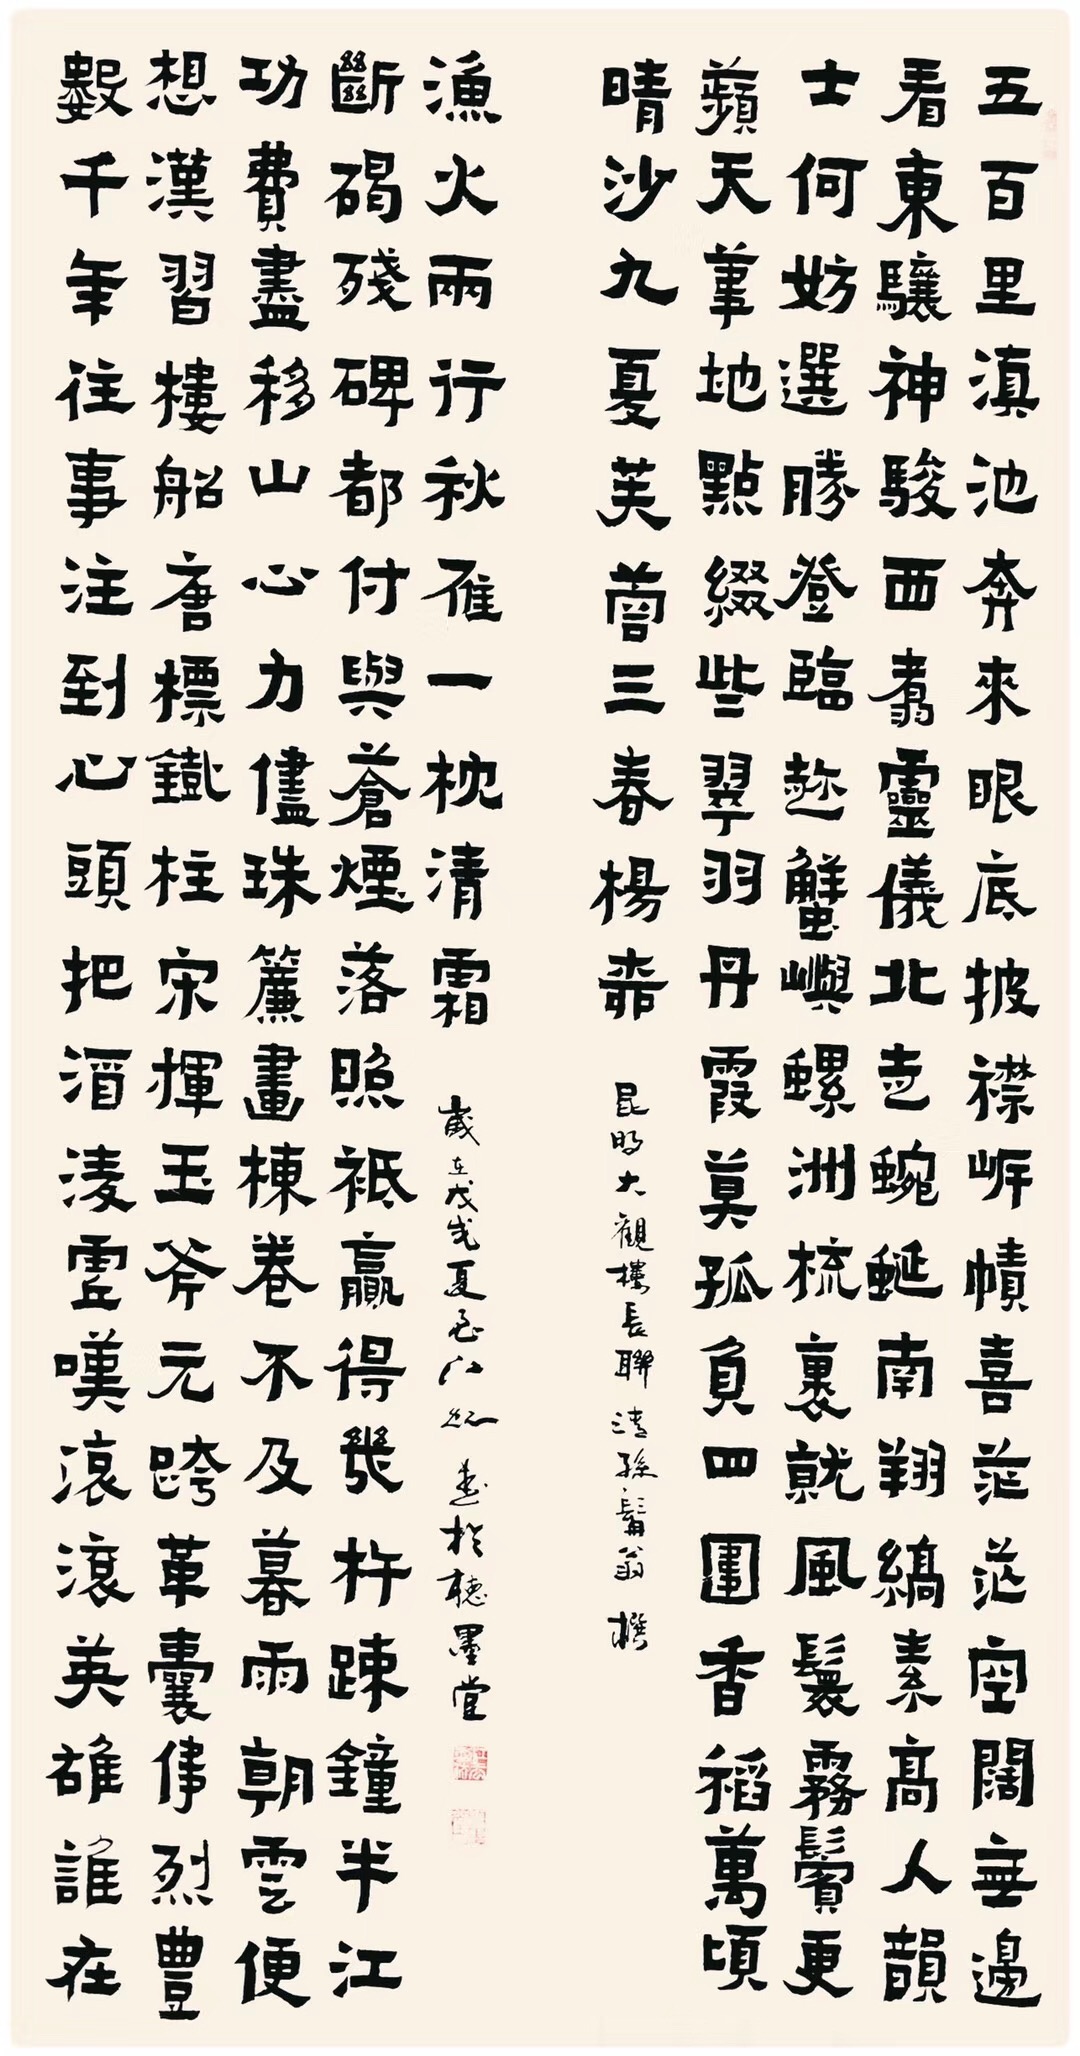 五百里滇池奔來眼底披襟岸幘喜茫茫空闊無邊
看東驤神駿西翥靈儀北走蜿蜒南翔縞素高人韻
士何妨選勝登臨趁蟹嶼螺洲梳裹就風鬟霧鬢更
蘋天葦地點綴些翠羽丹霞莫孤負四圍香稻萬頃
晴沙九夏芙蓉三春楊柳
昆明大觀樓長聯清孫髯翁撰
數千年往事注到心頭把酒淩虛嘆滾滾英雄誰在
想漢習樓船唐標鐵柱宋揮玉斧元跨革囊偉烈豐
功費盡移山心力儘珠簾畫棟卷不及暮雨朝雲便
斷碣殘碑都付與蒼煙落照祗贏得幾杵疎鐘半江
漁火兩行秋雁一枕清霜
歲在戊戌夏至書於聽墨堂